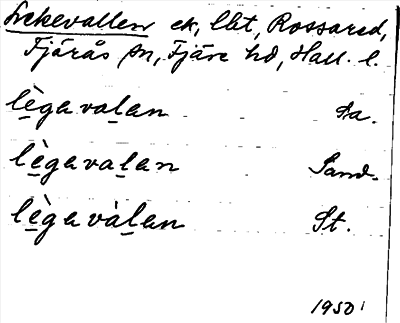 Lekevallen ek, lht, Rossared,
Fjärås sn, Fjäre hd, Hall. l.
lè̱gavaḻan Sa.
lè̱gavaḻan Sand.
lè̱gavàḻan St.
1950